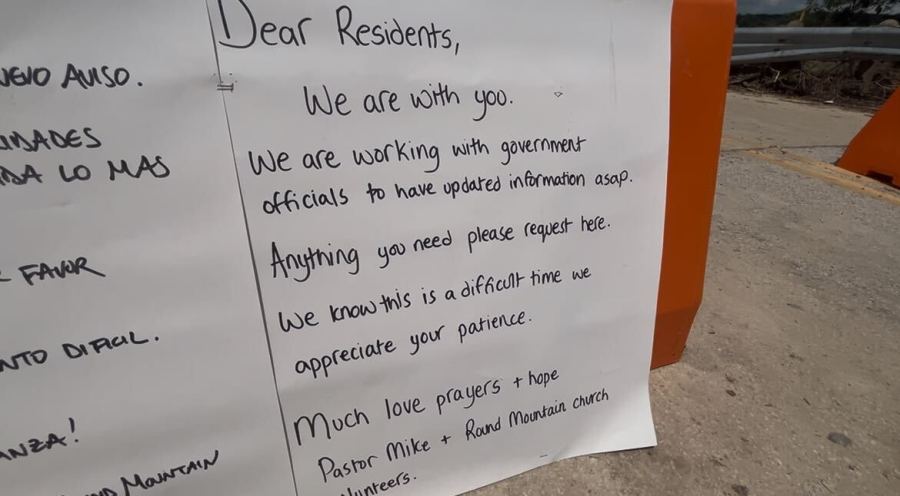 AVISO.
LO MAS
FAVOR
DIFICIL.
MOUNTAIN
Dear Residents,
We are with you.
We are working with government
officials to have updated information asap.
Anything you need please request here.
We know this is a difficult time we
appreciate your patience.
Much love prayers + hope
Pastor Mike + Round Mountain church